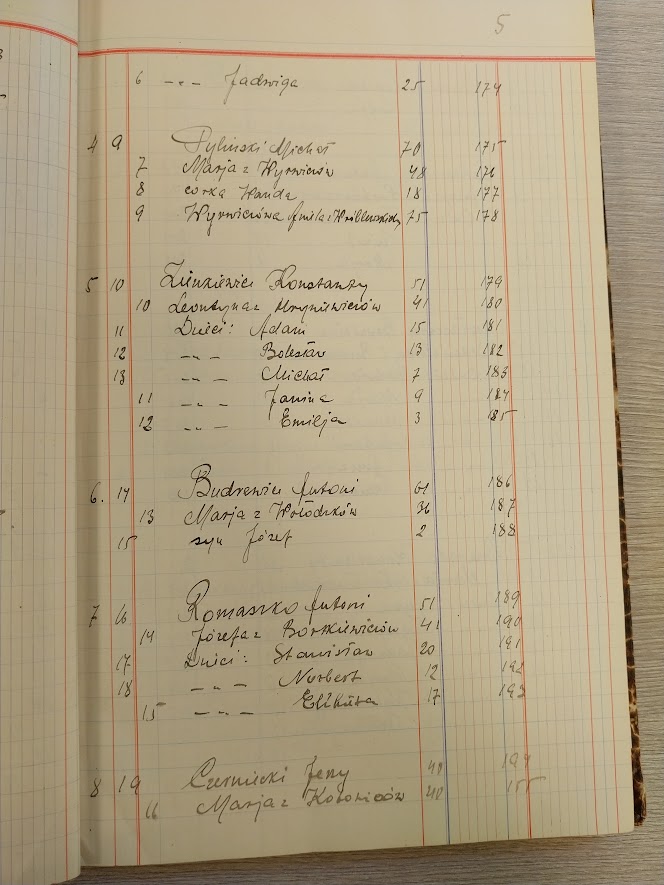 5
6 -"- Jadwiga 25 174
4 9 Pyliński Michał 70 175
7 Marja z Wyrwiczów 48 176
8 córka Wanda 18 177
9 Wyrwiczówa Amila z Wróblewskich 75 178
5 10 Zienkiewicz Konstanty 51 179
10 Leontyna z Hryniewiczów 41 180
11 Dzieci: Adam 15 181
12 -"- Bolesław 13 182
13 -"- Michał 7 183
11 -"- Janina 9 184
12 -"- Emilja 3 185
6. 14 Budrewicz Antoni 61 186
13 Marja z Wołodzków 36 187
15 syn Józef 2 188
7 16 Romaszko Antoni 51 189
14 Józefa z Bortkiewiczów 41 190
17 Dzieci: Stanisław 20 191
18 -"- Norbert 12 192
15 -"- Elżbieta 17 193
8 19 Czerniecki Jerzy 40 194
16 Marja z 40 155